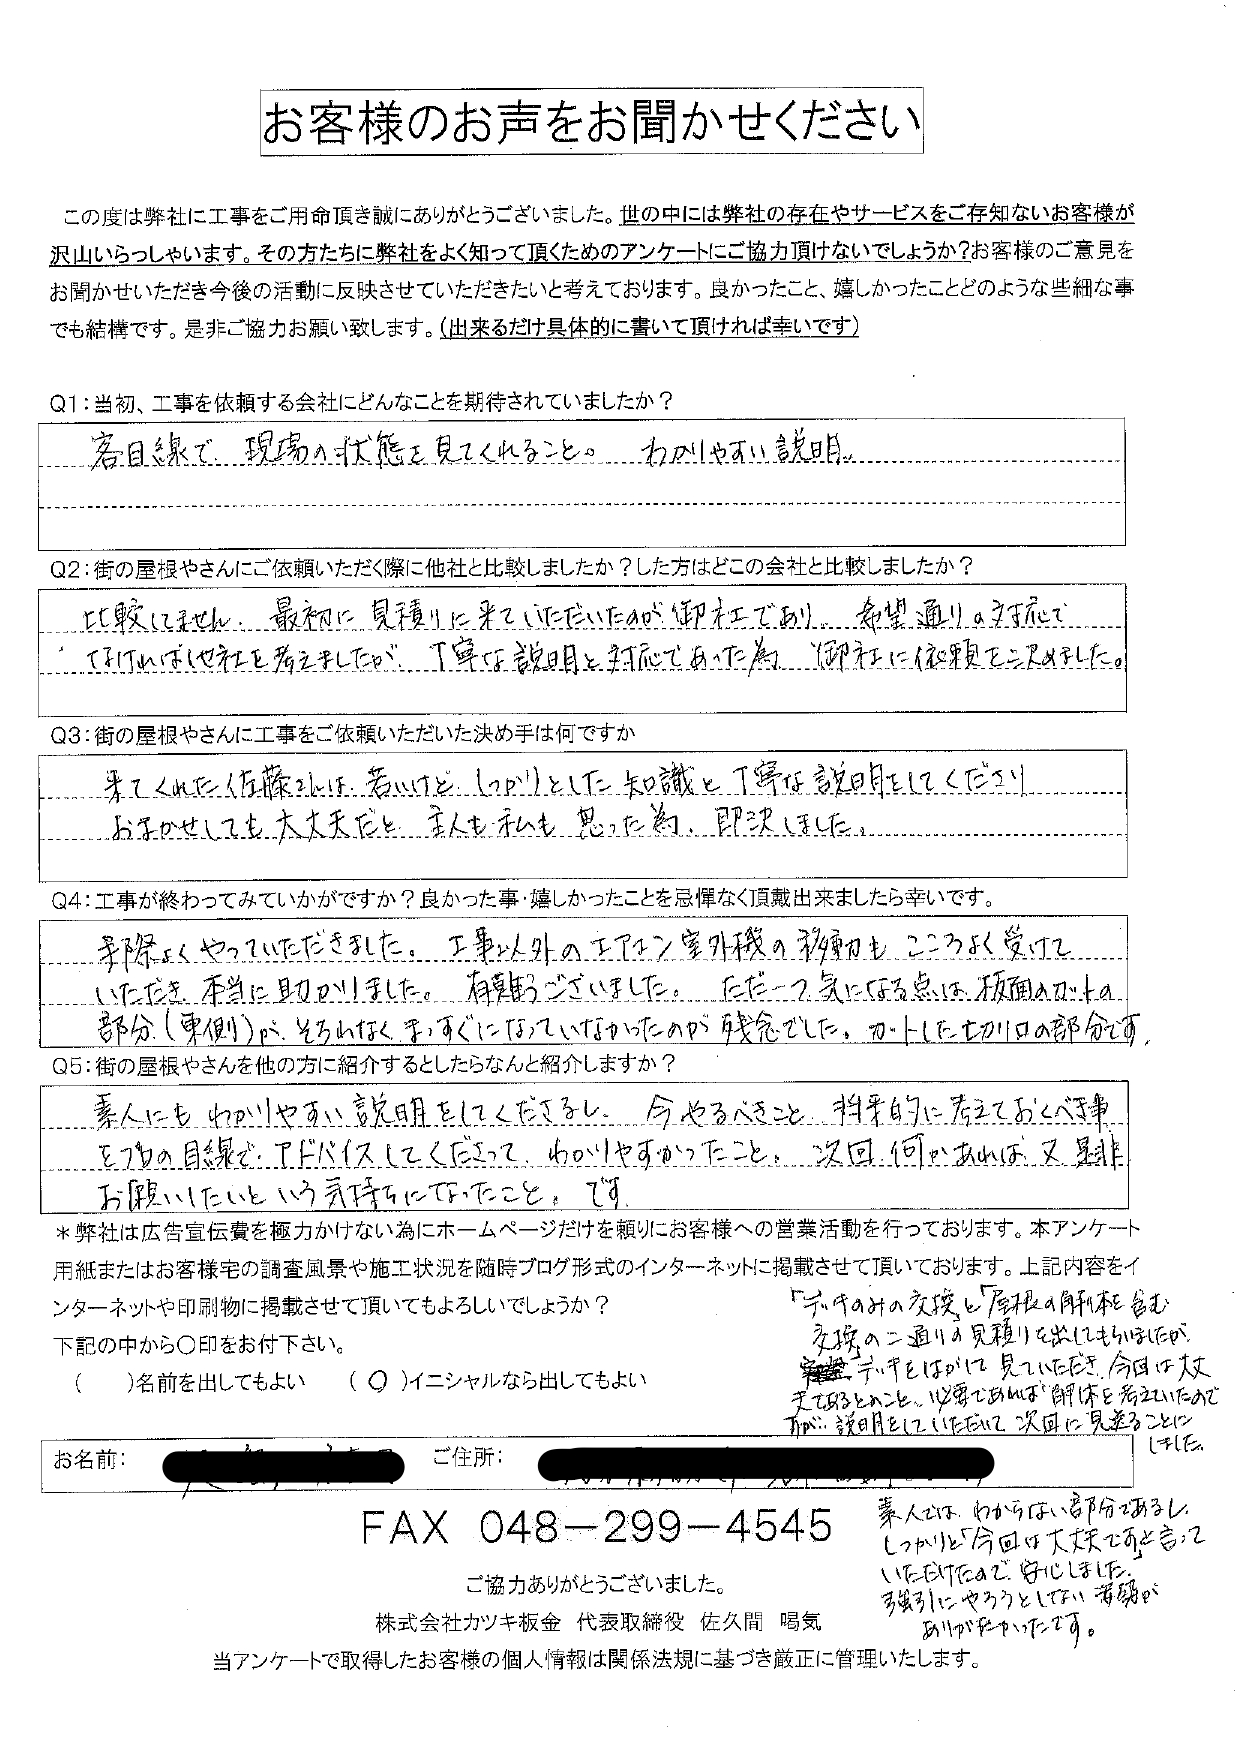 お客様のお声をお聞かせください
この度は弊社に工事をご用命頂き誠にありがとうございました。世の中には弊社の存在やサービスをご存知ないお客様が
沢山いらっしゃいます。その方たちに弊社をよく知って頂くためのアンケートにご協力頂けないでしょうか?お客様のご意見を
お聞かせいただき今後の活動に反映させていただきたいと考えております。良かったこと、嬉しかったことどのような些細な事
でも結構です。是非ご協力お願い致します。(出来るだけ具体的に書いて頂ければ幸いです)
Q1:当初、工事を依頼する会社にどんなことを期待されていましたか?
客目線で、現場の状態を見てくれること。 わかりやすい説明。
Q2:街の屋根やさんにご依頼いただく際に他社と比較しましたか?した方はどこの会社と比較しましたか?
比較してません。最初に見積りに来ていただいたのが御社であり、希望通りの対応で
なければ他社を考えましたが、丁寧な説明と対応であった為、御社に依頼を決めました。
Q3:街の屋根やさんに工事をご依頼いただいた決め手は何ですか
来てくれた佐藤さんは、若いけど、しっかりとした知識と丁寧な説明をしてくださり
おまかせしても大丈夫だと、主人も私も思った為、即決しました。
Q4:工事が終わってみていかがですか?良かった事・嬉しかったことを忌憚なく頂戴出来ましたら幸いです。
手際よくやっていただきました。工事以外のエアコン室外機の移動もこころよく受けて
いただき、本当に助かりました。有難うございました。ただ一つ気になる点は、板面のカットの
部分(東側)が、そろわなく、まっすぐになっていなかったのが残念でした。カットした切り口の部分です。
Q5:街の屋根やさんを他の方に紹介するとしたらなんと紹介しますか?
素人にもわかりやすい説明をしてくださるし、今やるべきこと、将来的に考えておくべき事
をプロの目線で、アドバイスしてくださって、わかりやすかったこと。次回、何かあれば、又、是非
お願いしたいという気持ちになったこと。です
*弊社は広告宣伝費を極力かけない為にホームページだけを頼りにお客様への営業活動を行っております。本アンケート
用紙またはお客様宅の調査風景や施工状況を随時ブログ形式のインターネットに掲載させて頂いております。上記内容をイ
ンターネットや印刷物に掲載させて頂いてもよろしいでしょうか?
下記の中から〇印をお付下さい。
( )名前を出してもよい (〇)イニシャルなら出してもよい
「デッキのみの交換」と「屋根の解体を含む
交換」の二通りの見積りを出してもらいましたが、
デッキをはがして見ていただき、今回は大丈
夫であるとのこと、必要であれば解体を考えていたので
すが、説明をしていただいて次回に見送ることに
しました。
お名前: ご住所:
FAX 048-299-4545
素人では、わからない部分であるし、
しっかりと「今回は大丈夫です」と言って
いただけたので、安心しました。
強引にやろうとしない姿勢が
ありがたかったです。
ご協力ありがとうございました。
株式会社カツキ板金 代表取締役 佐久間 喝気
当アンケートで取得したお客様の個人情報は関係法規に基づき厳正に管理いたします。